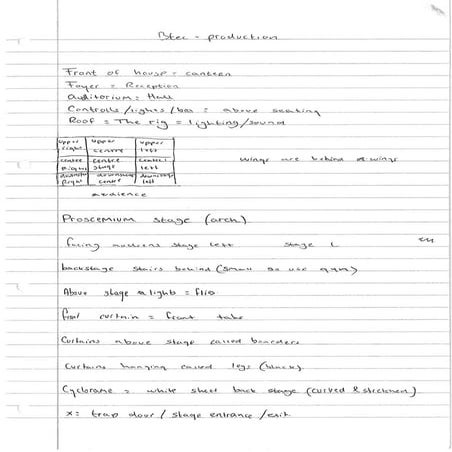 Btec - production
Front of house = canteen
Foyer = Reception
Auditorium = Hall
Controlls / lights / box = above seating
Roof = The rig = lighting/sound
upper right upper centre upper left
centre Right centre stage centre left
downstage Right downstage centre downstage left
wings are behind
audience
Proscemium stage (arch)
facing stage left stage L
backstage stairs behind (small so use
Above stage & lights = flis
curtain = front tabs
Curtains above stage called boarders
Curtains hanging called legs (black)
Cyclorame = white sheet back stage (curved & stretched)
x = trap door / stage entrance / exit